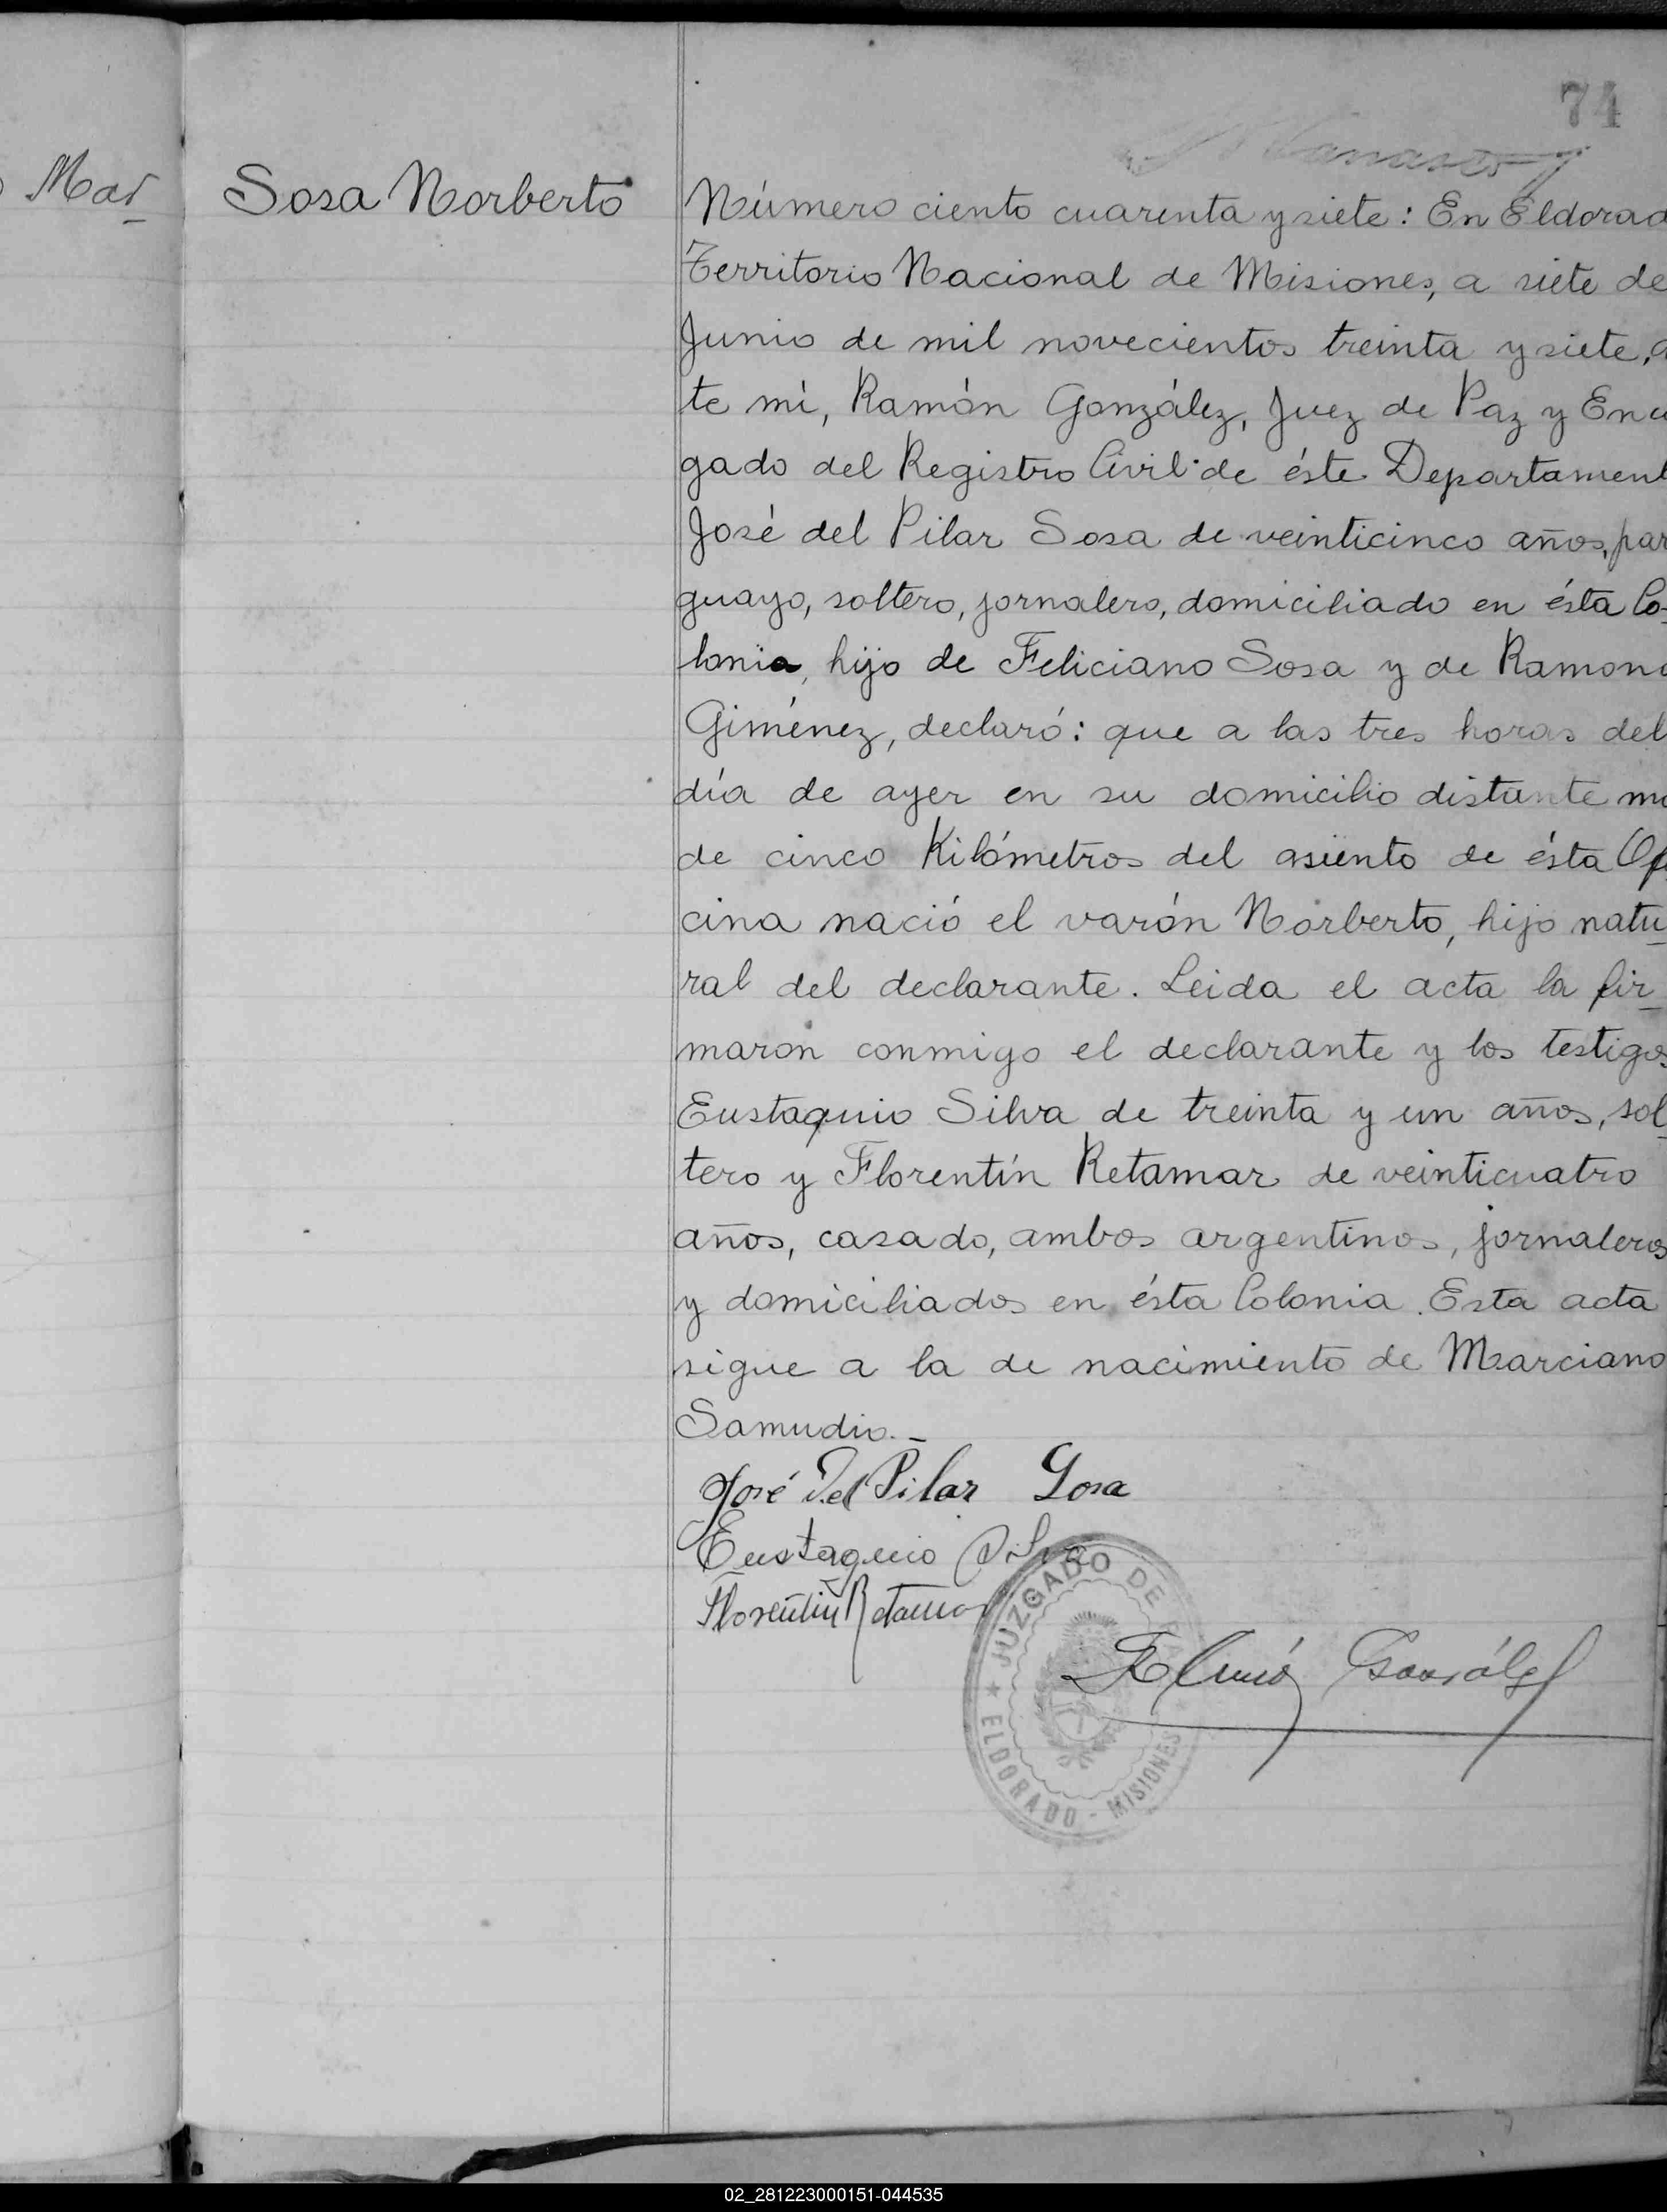 74
Mar
Sosa Norberto
Número ciento cuarenta y siete: En Eldorad
Territorio Nacional de Misiones, a siete de
Junio de mil novecientos treinta y siete, a
te mí, Ramón González, Juez de Paz y Enca
gado del Registro Civil de éste Departament
José del Pilar Sosa de veinticinco años, par
guayo, soltero, jornalero, domiciliado en ésta Co-
lonia, hijo de Feliciano Sosa y de Ramona
Giménez, declaró: que a las tres horas del
día de ayer en su domicilio distante ma
de cinco Kilómetros del asiento de ésta Ofi
cina nació el varón Norberto, hijo natu-
ral del declarante. Leida el acta la fir-
maron conmigo el declarante y los testigos
Eustaquio Silva de treinta y un años, sol-
tero y Florentín Retamar de veinticuatro
años, casado, ambos argentinos, jornaleros
y domiciliados en ésta Colonia. Esta acta
sigue a la de nacimiento de Marciano
Samudio.-
José Del Pilar Sosa
Eustaquio Silva
Florentin Retamar
JUZGADO DE
ELDORADO - MISIONES
Ramón González
02_281223000151-044535